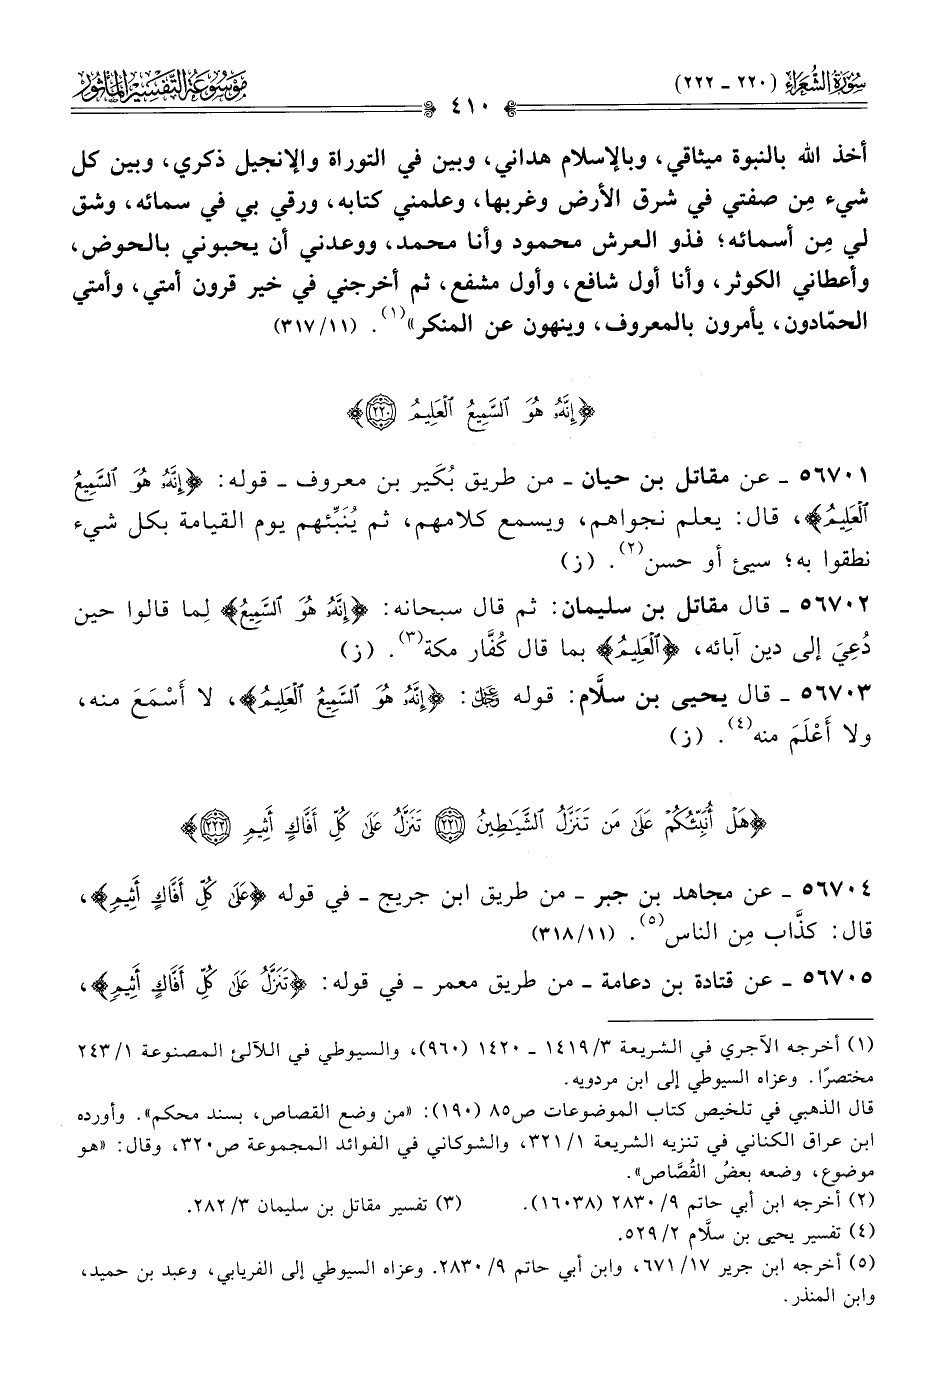 سُورَةُ الشُّعَرَاءِ (٢٢٠ ـ ٢٢٢)
٤١٠
مَوْسُوعَةُ التَّفْسِيرِ المَأْثُور
أخذ الله بالنبوة ميثاقي، وبالإسلام هداني، وبين في التوراة والإنجيل ذكري، وبين كل
شيء مِن صفتي في شرق الأرض وغربها، وعلمني كتابه، ورقي بي في سمائه، وشق
لي مِن أسمائه؛ فذو العرش محمود وأنا محمد، ووعدني أن يحبوني بالحوض،
وأعطاني الكوثر، وأنا أول شافع، وأول مشفع، ثم أخرجني في خير قرون أمتي، وأمتي
الحمّادون، يأمرون بالمعروف، وينهون عن المنكر»(١). (٣١٧/١١)
﴿إِنَّهُۥ هُوَ ٱلسَّمِيعُ ٱلْعَلِيمُ ٢٢٠﴾
٥٦٧٠١ ـ عن مقاتل بن حيان ـ من طريق بُكَير بن معروف ـ قوله: ﴿إِنَّهُۥ هُوَ ٱلسَّمِيعُ
ٱلْعَلِيمُ﴾، قال: يعلم نجواهم، ويسمع كلامهم، ثم يُنَبِّئهم يوم القيامة بكل شيء
نطقوا به؛ سيئ أو حسن(٢). (ز)
٥٦٧٠٢ ـ قال مقاتل بن سليمان: ثم قال سبحانه: ﴿إِنَّهُۥ هُوَ ٱلسَّمِيعُ﴾ لِما قالوا حين
دُعِيَ إلى دين آبائه، ﴿ٱلْعَلِيمُ﴾ بما قال كُفَّار مكة(٣). (ز)
٥٦٧٠٣ ـ قال يحيى بن سلَّام: قوله ﷿: ﴿إِنَّهُۥ هُوَ ٱلسَّمِيعُ ٱلْعَلِيمُ﴾، لا أَسْمَعَ منه،
ولا أَعْلَمَ منه(٤). (ز)
﴿هَلْ أُنَبِّئُكُمْ عَلَىٰ مَن تَنَزَّلُ ٱلشَّيَٰطِينُ ٢٢١ تَنَزَّلُ عَلَىٰ كُلِّ أَفَّاكٍ أَثِيمٍ ٢٢٢﴾
٥٦٧٠٤ ـ عن مجاهد بن جبر ـ من طريق ابن جريج ـ في قوله ﴿عَلَىٰ كُلِّ أَفَّاكٍ أَثِيمٍ﴾،
قال: كذَّاب مِن الناس(٥). (٣١٨/١١)
٥٦٧٠٥ ـ عن قتادة بن دعامة ـ من طريق معمر ـ في قوله: ﴿تَنَزَّلُ عَلَىٰ كُلِّ أَفَّاكٍ أَثِيمٍ﴾،
(١) أخرجه الآجري في الشريعة ٣/ ١٤١٩ ـ ١٤٢٠ (٩٦٠)، والسيوطي في اللآلئ المصنوعة ١/ ٢٤٣
مختصرًا. وعزاه السيوطي إلى ابن مردويه.
قال الذهبي في تلخيص كتاب الموضوعات ص٨٥ (١٩٠): «من وضع القصاص، بسند محكم». وأورده
ابن عراق الكناني في تنزيه الشريعة ١/ ٣٢١، والشوكاني في الفوائد المجموعة ص٣٢٠، وقال: «هو
موضوع، وضعه بعضُ القُصَّاص».
(٢) أخرجه ابن أبي حاتم ٩/ ٢٨٣٠ (١٦٠٣٨). (٣) تفسير مقاتل بن سليمان ٣/ ٢٨٢.
(٤) تفسير يحيى بن سلَّام ٢/ ٥٢٩.
(٥) أخرجه ابن جرير ١٧/ ٦٧١، وابن أبي حاتم ٩/ ٢٨٣٠. وعزاه السيوطي إلى الفريابي، وعبد بن حميد،
وابن المنذر.